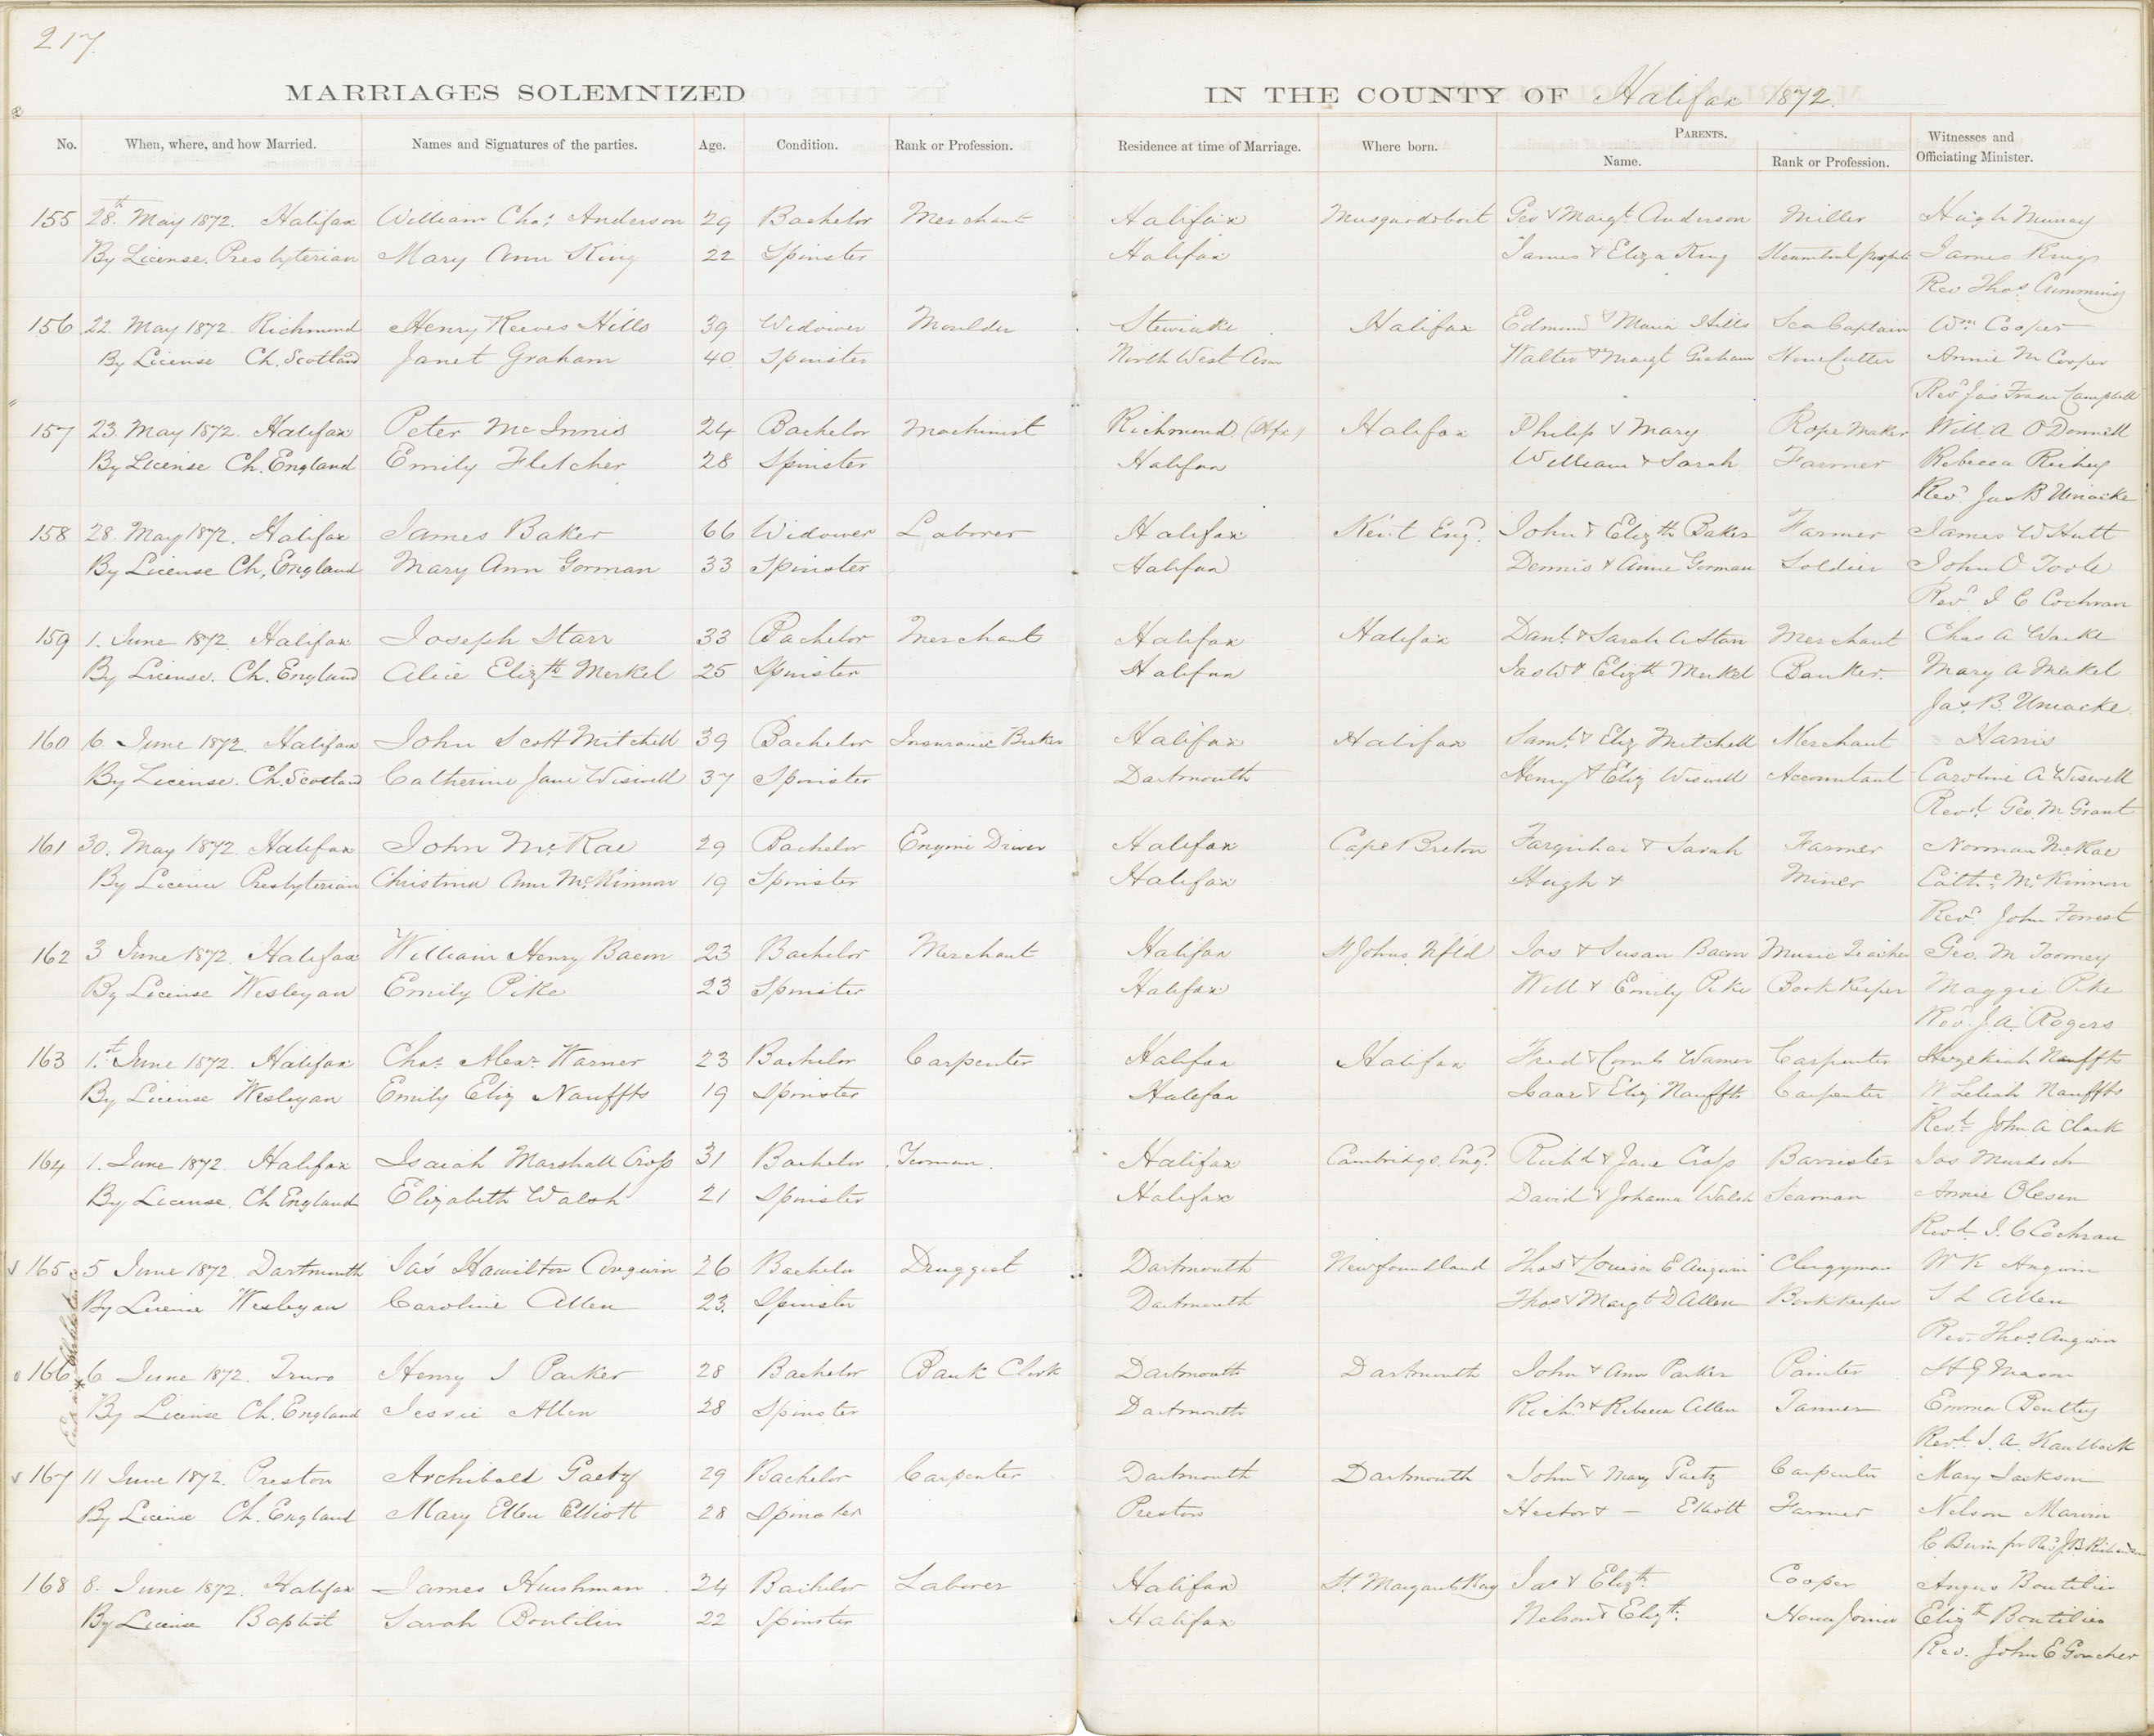 217.
MARRIAGES SOLEMNIZED IN THE COUNTY OF Halifax 1872.
No. When, where, and how Married. Names and Signatures of the parties. Age. Condition. Rank or Profession. Residence at time of Marriage. Where born. PARENTS. Name. Rank or Profession. Witnesses and Officiating Minister.
155 28th May 1872. Halifax William Chas Anderson 29 Bachelor Merchant Halifax Musquodoboit Geo & Margt Anderson Miller Hugh Murray
By License. Presbyterian Mary Ann King 22 Spinster Halifax James & Eliza King James King
Rev Thos Cumming
156 22 May 1872. Richmond Henry Reeves Hills 39 Widower Moulder Stewiacke Halifax Edmund & Maria Hills Sea Captain Wm Cooper
By License Ch. Scotland Janet Graham 40 Spinster North West Arm Walter & Margt Graham Stone Cutter Annie M Cooper
Revd Jas Fraser Campbell
157 23. May 1872. Halifax Peter McInnis 24 Bachelor Machinist Richmond (Hfx) Halifax Philip & Mary Rope Maker Will. A O'Donnell
By License Ch. England Emily Fletcher 28 Spinster Halifax William & Sarah Farmer Rebecca Richey
Revd Jas B Uniacke
158 28. May 1872. Halifax James Baker 66 Widower Laborer Halifax Kent Engd John & Elizth Baker Farmer James W Hutt
By License Ch, England Mary Ann Gorman 33 Spinster Halifax Dennis & Anne Gorman Soldier John O Toole
Revd J C Cochran
159 1. June 1872. Halifax Joseph Starr 33 Bachelor Merchant Halifax Halifax Danl & Sarah A Starr Merchant Chas A
By License. Ch. England Alice Elizth Merkel 25 Spinster Halifax Jas W & Elizth Merkel Banker. Mary A Merkel
Jas. B. Uniacke
160 6. June 1872. Halifax John Scott Mitchell 39 Bachelor Insurance Broker Halifax Halifax Saml & Eliz Mitchell Merchant Harris
By License. Ch. Scotland Catherine Jane Wiswell 37 Spinster Dartmouth Henry & Eliz Wiswell Accountant Caroline A Wiswell
Revd. Geo. M Grant
161 30. May 1872. Halifax John McRae 29 Bachelor Engine Driver Halifax Cape Breton Farquhar & Sarah Farmer Norman McRae
By License Presbyterian Christina Ann McKinnon 19 Spinster Halifax Hugh & Miner Cathe McKinnon
Revd John Forrest
162 3 June 1872. Halifax William Henry Bacon 23 Bachelor Merchant Halifax St Johns Nfld Jos & Susan Bacon Music Teacher Geo. M Toomey
By License Wesleyan Emily Pike 23 Spinster Halifax Will & Emily Pike Book Keeper Maggie Pike
Revd J. A. Rogers
163 1.st June 1872. Halifax Chas. Alexr Warner 23 Bachelor Carpenter Halifax Halifax Fred & Warner Carpenter Hezekiah Nauffts
By License Wesleyan Emily Eliz Nauffts 19 Spinster Halifax Isaac & Eliz Nauffts Carpenter Nauffts
Revd. John A Clark
164 1. June 1872. Halifax Isaiah Marshall Cross 31 Bachelor Yeoman. Halifax Cambridge, Engd Richd & Jane Cross Barrister Jas Murdoch
By License. Ch England Elizabeth Walsh 21 Spinster Halifax David & Johanna Walsh Seaman Annie Olesen
Revd. J. C Cochran
165 5 June 1872 Dartmouth Jas Hamilton Angwin 26 Bachelor Druggist Dartmouth Newfoundland Thos & Louisa E Angwin Clergyman W K Angwin
By License Wesleyan Caroline Allen 23. Spinster Dartmouth Thos & Margt D Allen Bookkeeper S L Allen
Rev. Thos Angwin
166 6 June 1872. Truro Henry I Parker 28 Bachelor Bank Clerk Dartmouth Dartmouth John & Ann Parker Painter H G Mason
By License Ch. England Jessie Allen 28 Spinster Dartmouth Richd & Rebecca Allen Tanner Emma Bentley
Revd J. A. Kaulbach
167 11 June 1872. Preston Archibald Gaetz 29 Bachelor Carpenter Dartmouth Dartmouth John & Mary Gaetz Carpenter Mary Jackson
By License Ch. England Mary Ellen Elliott 28 Spinster Preston Hector & — Elliott Farmer Nelson Marvin
C for Revd J. B. Richardson
168 8. June 1872. Halifax James Hirshman 24 Bachelor Laborer Halifax St. Margarets Bay Jas & Elizth Cooper Angus Boutilier
By License Baptist Sarah Boutilier 22 Spinster Halifax Nelson & Elizth House Joiner Elizth Boutilier
Rev. John E Goucher